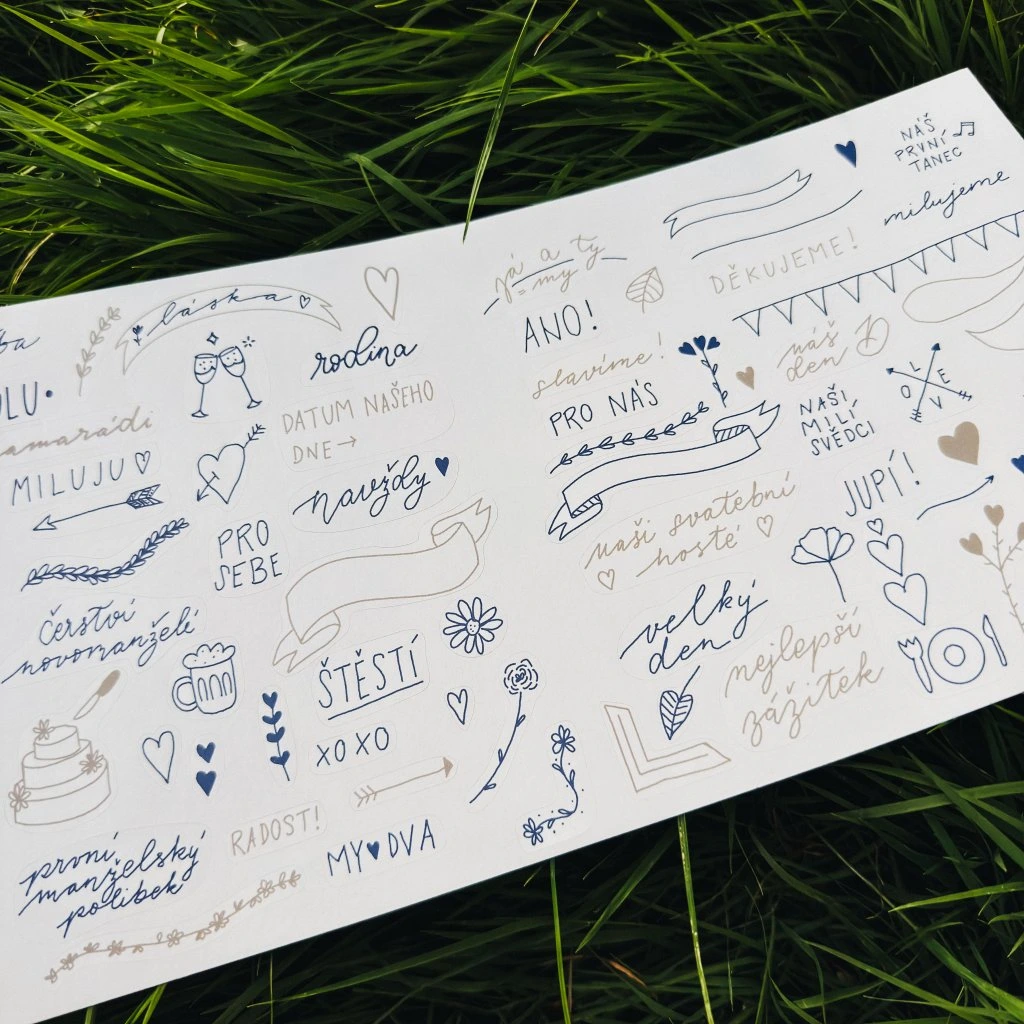 láska
rodina
DATUM NAŠEHO
DNE→
MILUJU♡
navždy
PRO
SEBE
čerství
novomanželé
ŠTĚSTÍ
XOXO
RADOST!
MY♥DVA
první
manželský
polibek
já a ty
= my
ANO!
slavíme!
PRO NÁS
naši svatební
hosté
velký
den
nejlepší
zážitek
NÁŠ
PRVNÍ
TANEC
milujeme
DĚKUJEME!
náš
den
LOVE
NAŠI
MILÍ
SVĚDCI
JUPÍ!